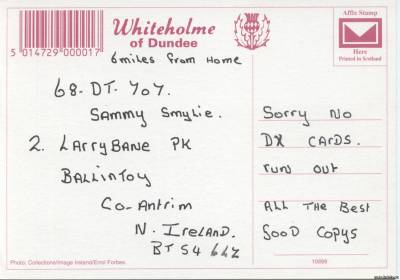 5 014729 000017
Whiteholme
of Dundee
Affix Stamp
Here
Printed in Scotland
6 miles from Home
68-DT-707
Sammy Smylie.
2. Larry Bane PK
Ballintoy
Co-Antrim
N. Ireland.
BT54 6LZ
Sorry No
DX CARDS.
run out
All The Best
Good Copys
Photo: Collections/Image Ireland/Errol Forbes.
10899